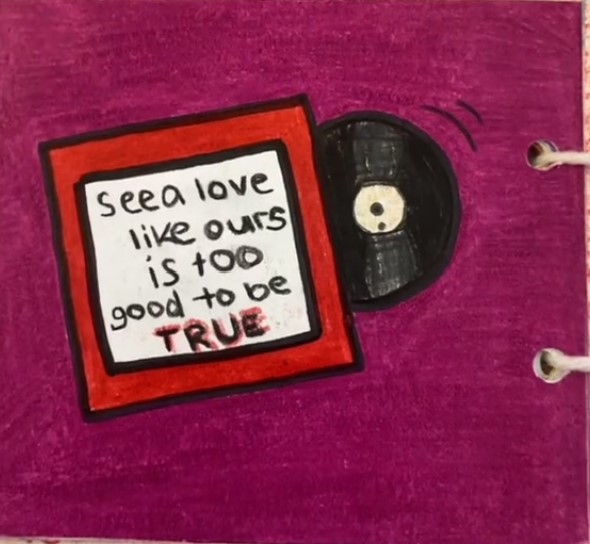 seea love
like ours
is too
good to be
TRUE